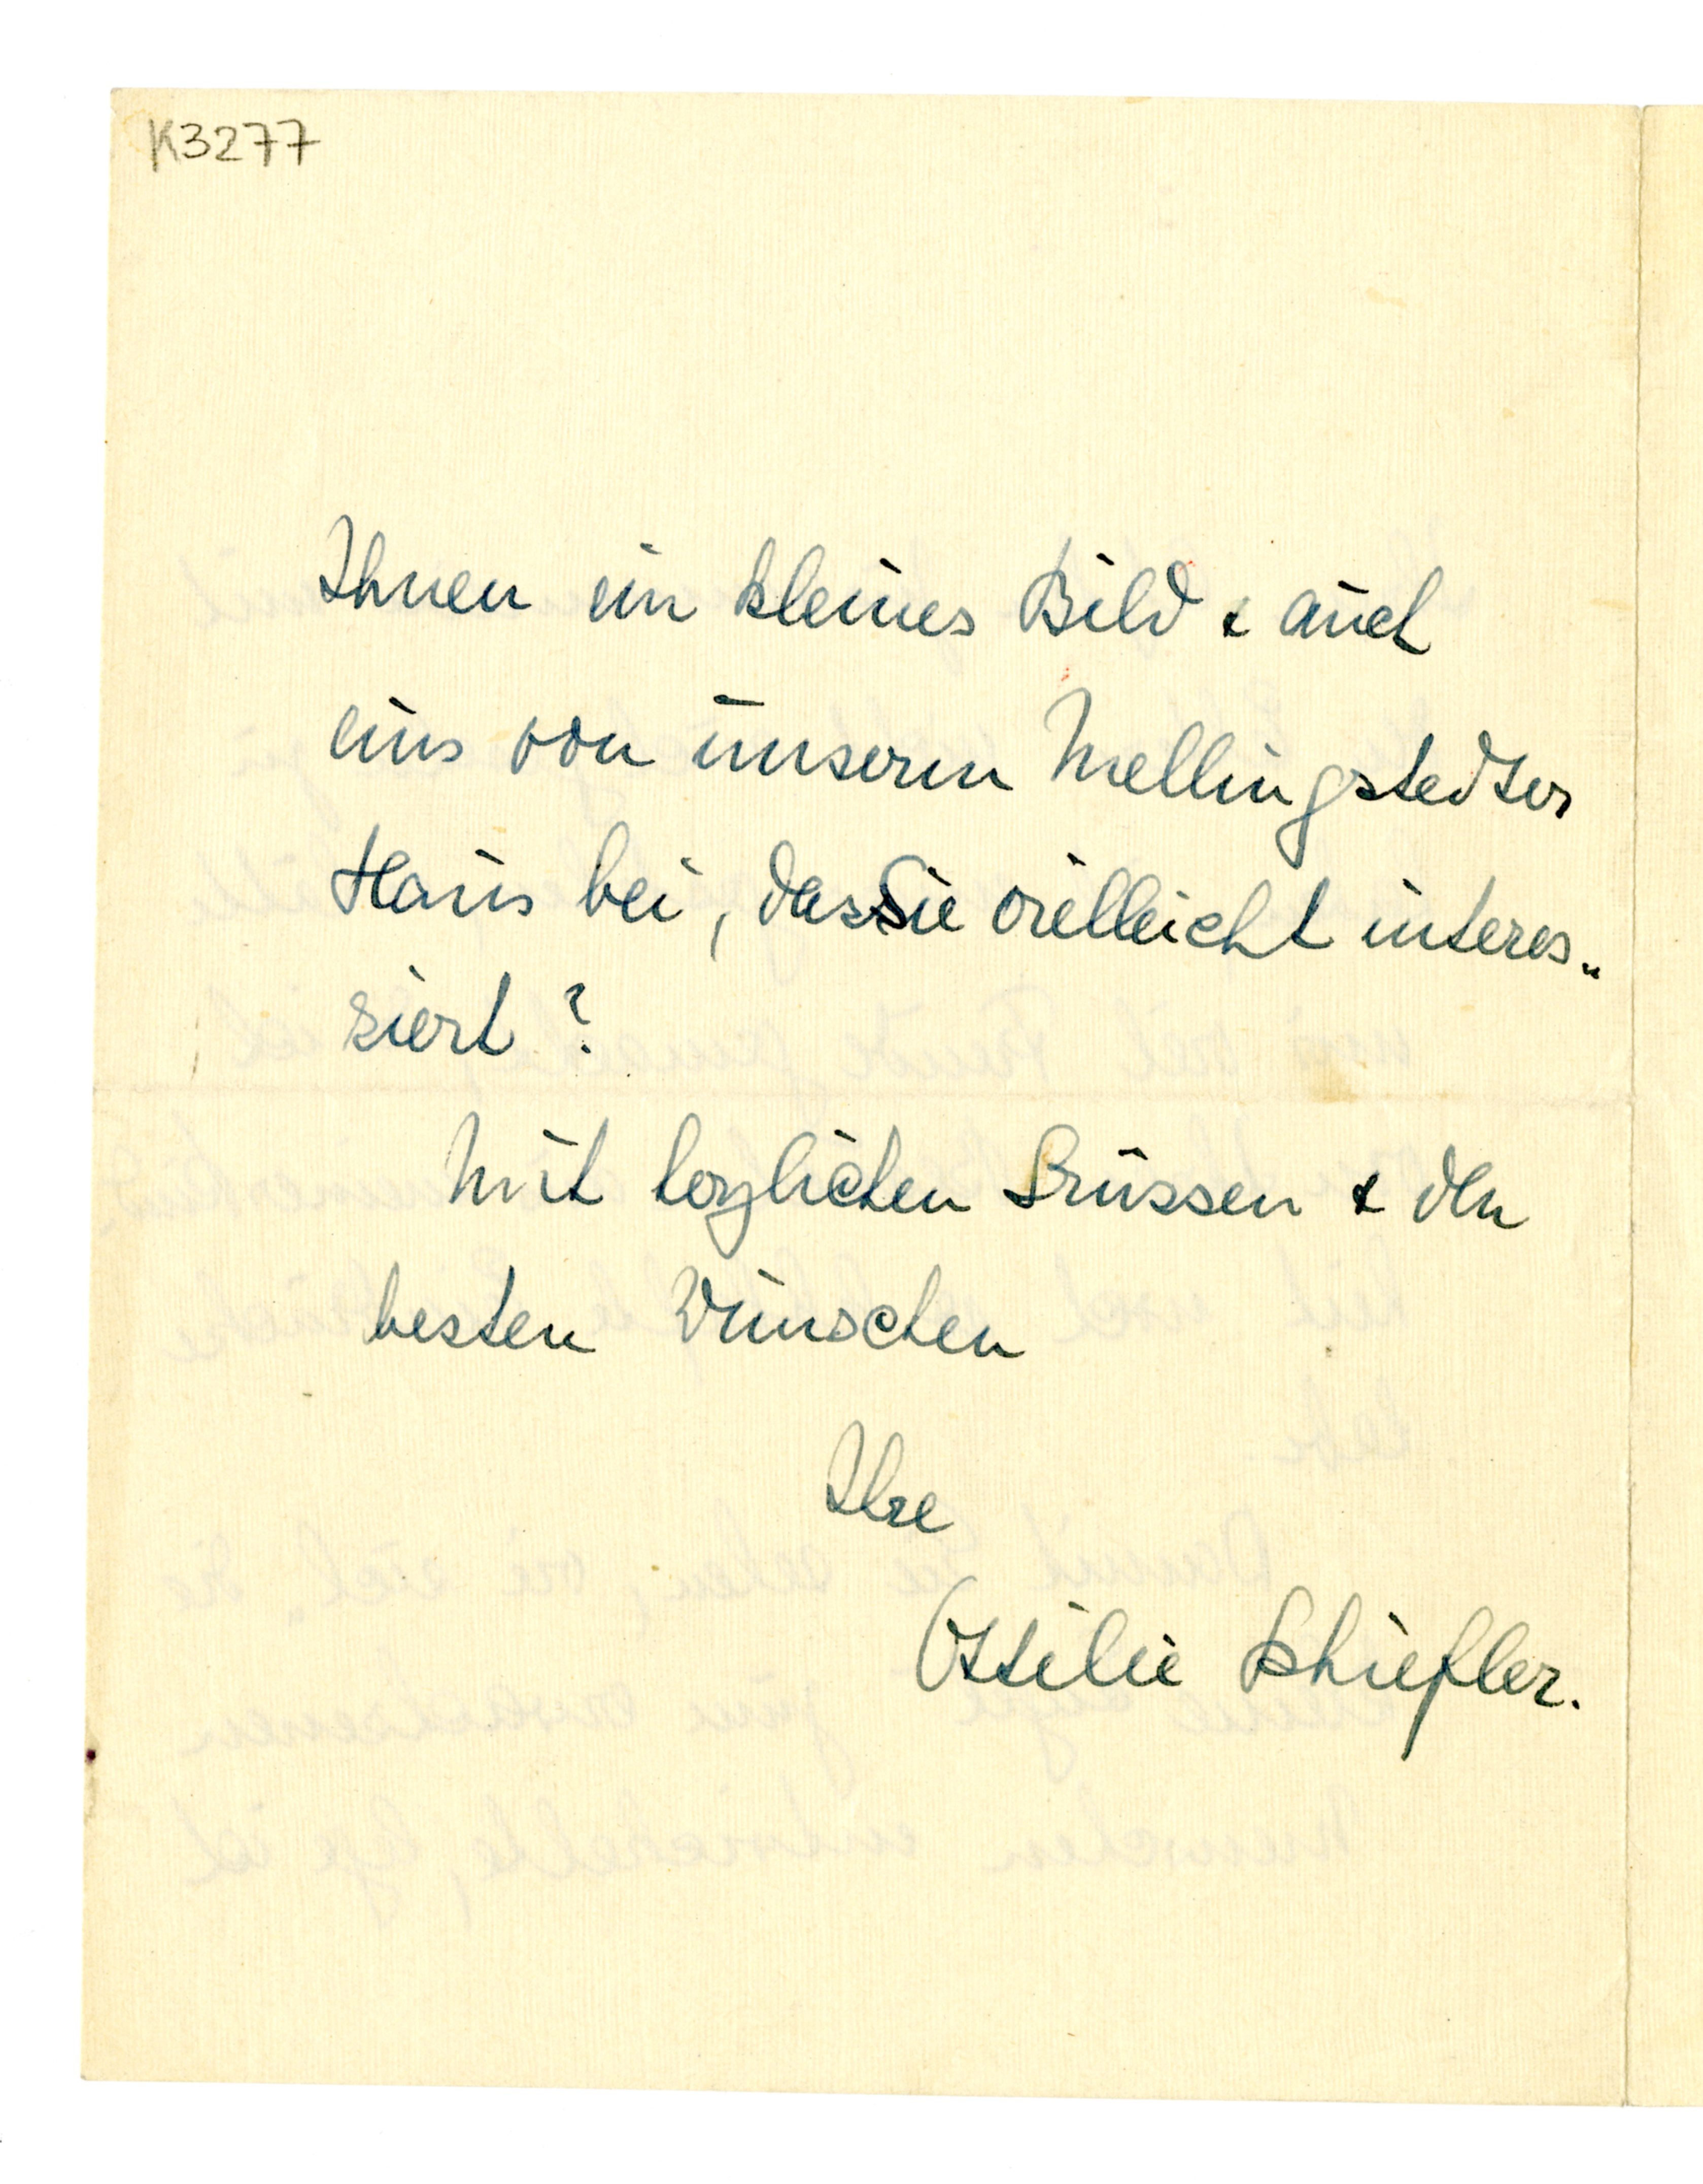 K3277
Ihnen ein kleines Bild & auch
eins von unserm Mellingstedter
Haus bei, das Sie vielleicht interes„
siert?
Mit herzlichen Grüssen & den
besten Wünschen
Ihre
Ottilie Schiefler.